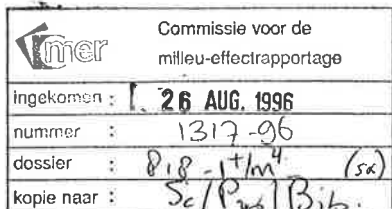 mer
Commissie voor de
milieu-effectrapportage
ingekomen : 26 AUG. 1996
nummer : 1317-96
dossier : 818 -1t/m4 (5x)
kopie naar : Sc/ /Bib.